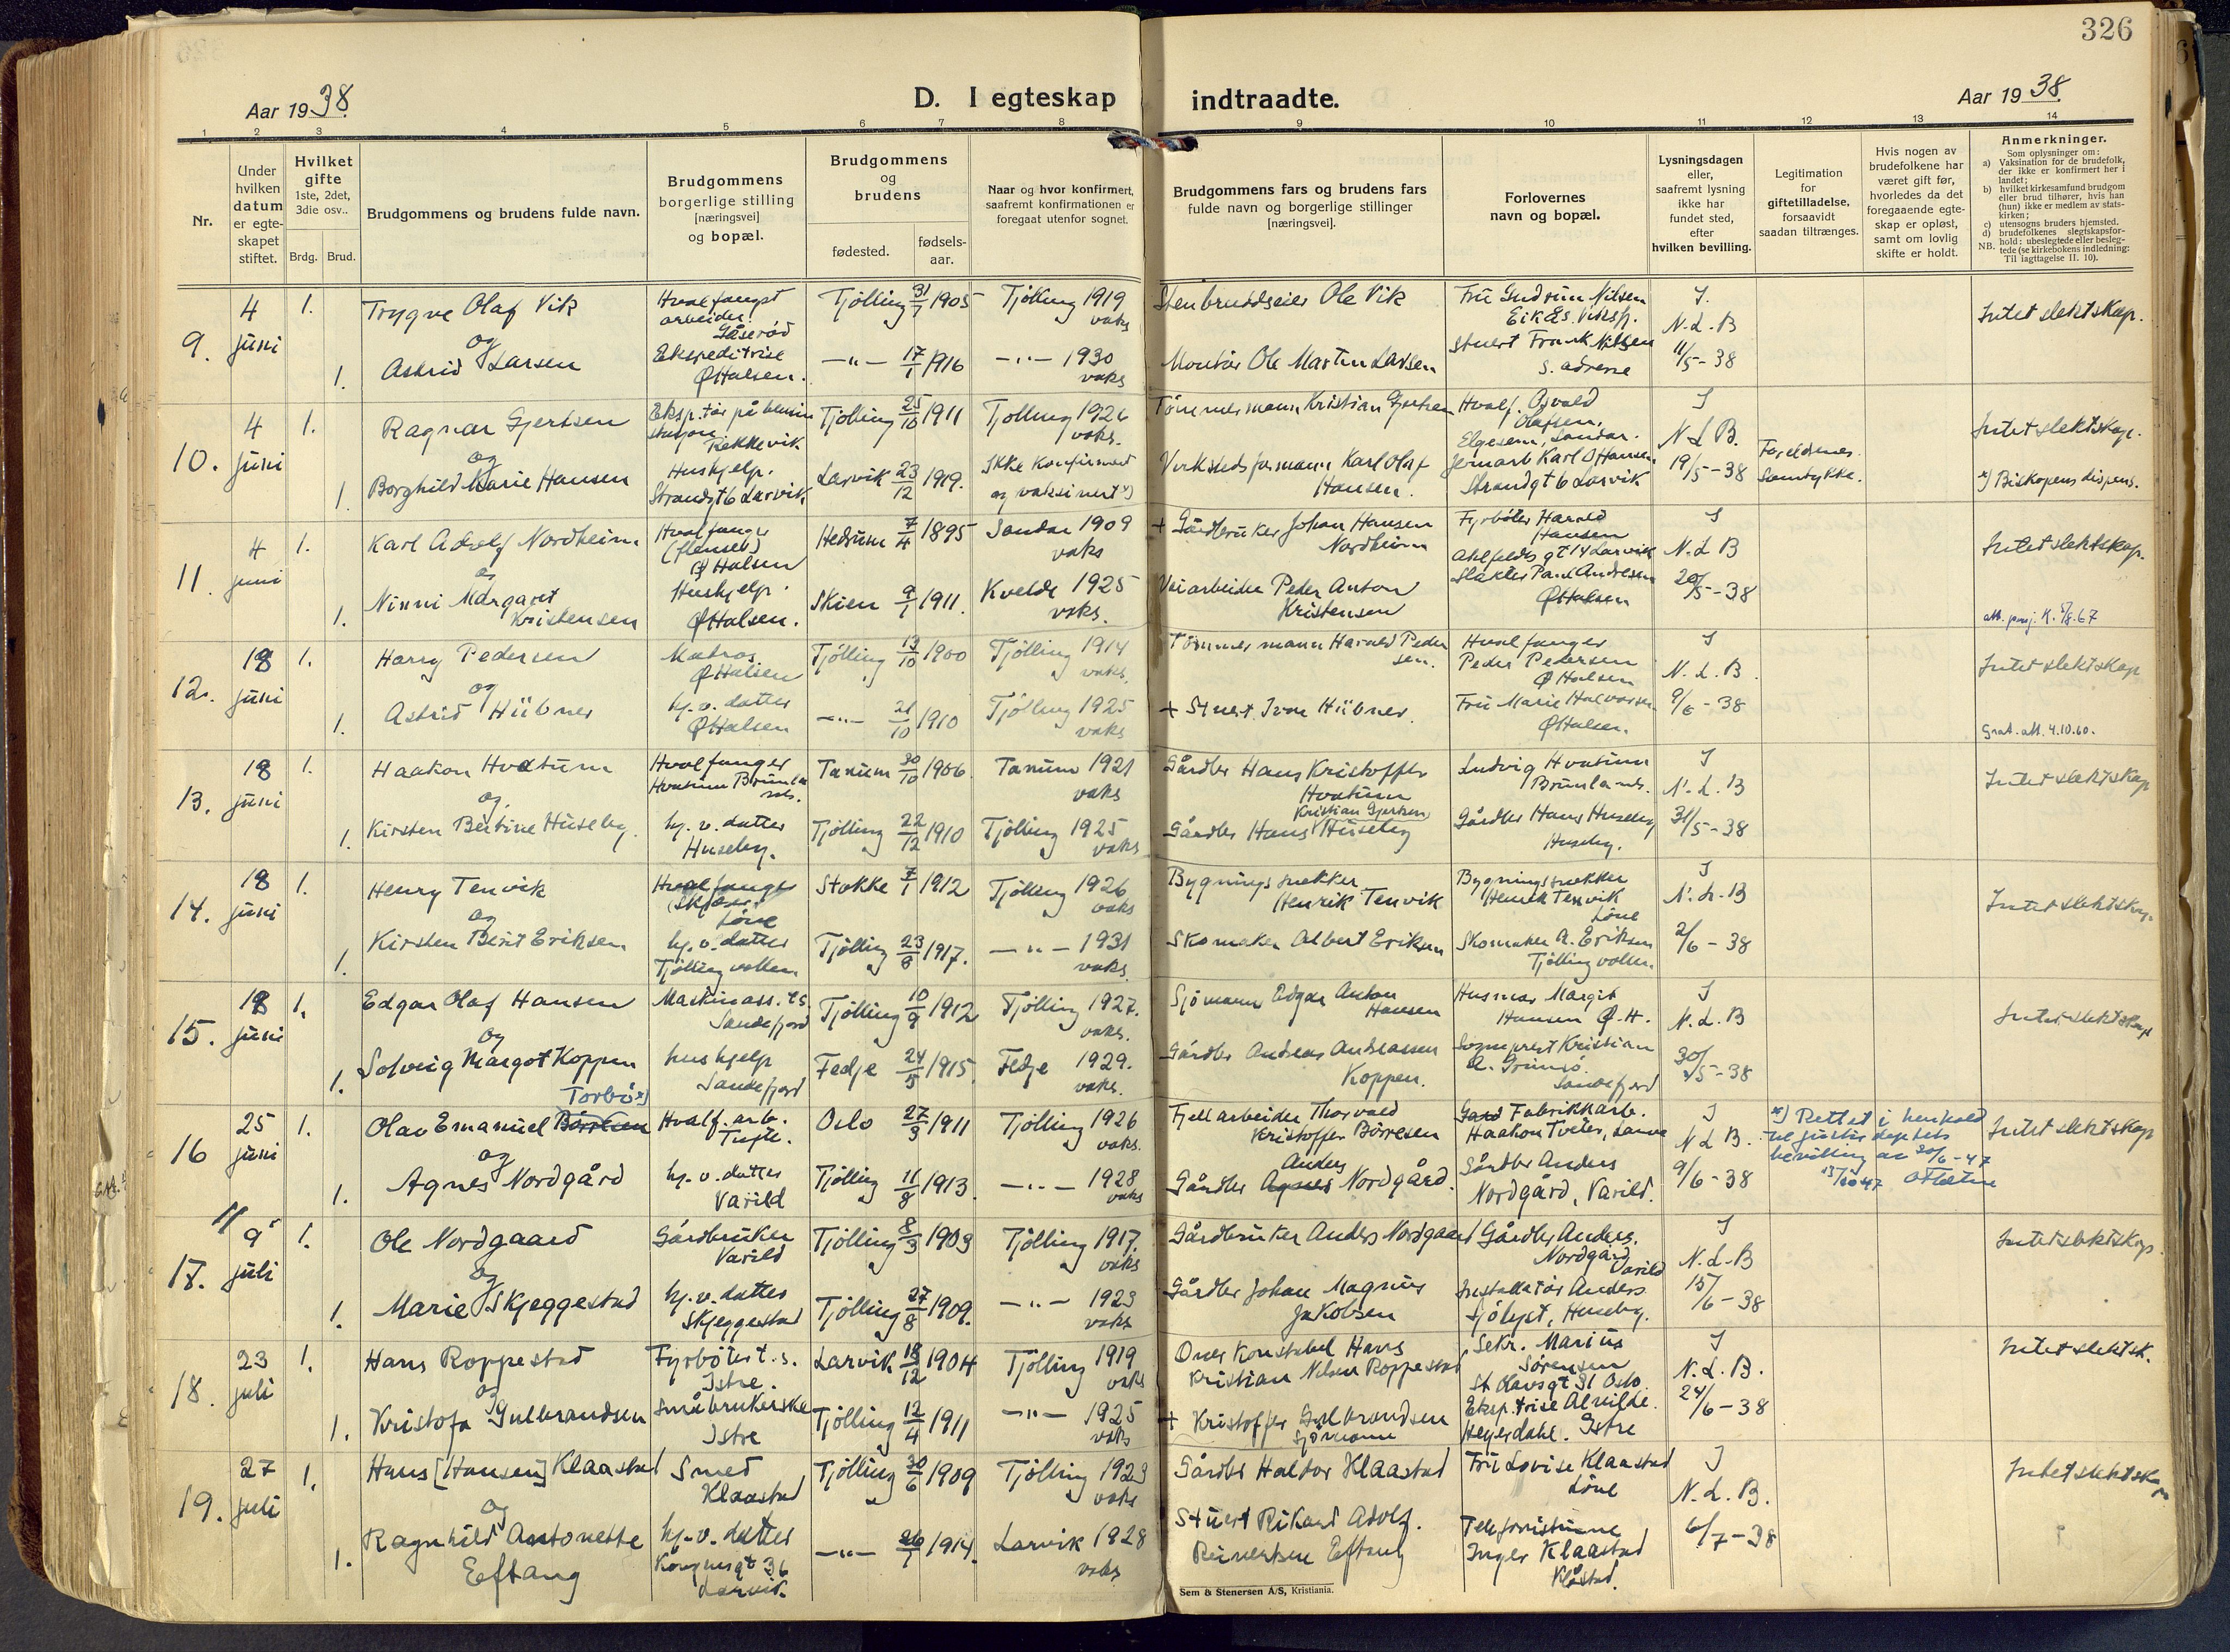 326
Aar 1938.
D. I egteskap indtraadte.
Aar 1938.
1 2 3 4 5 6 7 8 9 10 11 12 13 14
Nr.
Under hvilken datum er egte-skapet stiftet.
Hvilket gifte 1ste, 2det, 3die osv..
Brdg. Brud.
Brudgommens og brudens fulde navn.
Brudgommens borgerlige stilling [næringsvei] og bopæl.
Brudgommens og brudens
fødested.
fødsels-aar.
Naar og hvor konfirmert, saafremt konfirmationen er foregaat utenfor sognet.
Brudgommens fars og brudens fars fulde navn og borgerlige stillinger [næringsvei].
Forlovernes navn og bopæl.
Lysningsdagen eller, saafremt lysning ikke har fundet sted, efter hvilken bevilling.
Legitimation for giftetilladelse, forsaavidt saadan tiltrænges.
Hvis nogen av brudefolkene har været gift før, hvorledes da det foregaaende egte-skap er opløst, samt om lovlig skifte er holdt.
Anmerkninger.
Som oplysninger om:
a) Vaksination for de brudefolk, der ikke er konfirmert her i landet;
b) hvilket kirkesamfund brudgom eller brud tilhører, hvis han (hun) ikke er medlem av stats-kirken;
c) utensogns bruders hjemsted.
d) brudefolkenes slegtskapsfor-hold: ubeslegtede eller besleg-tede (se kirkebokens indledning: NB. Til iagttagelse II. 10).
9. 4 juni 1. Trygve Olaf Vik Hvalfangst arbeider. Gåserød Tjølling 31/7 1905 Tjølling 1919 vaks Stenbruddseier Ole Vik Fru Gudrun Nilsen Eikås. Viksf. I. N.L.B Intet slektskap.
og
1. Astrid Larsen Ekspeditrise Ø Halsen. —"— 17/1 1916 —"— 1930 vaks Montør Ole Martin Larsen Stuert Frank Nilsen s. adresse 11/5-38
10. 4 juni 1. Ragnar Gjertsen Eksp.tør på bensin stasjon Rekkevik Tjølling 25/10 1911 Tjølling 1926 vaks. Tømmermann Kristian Gjertsen Hvalf. Osvald Olafsen, Elgesem, Sandar. I N L B. Intet slektskap.
og
1. Borghild Marie Hansen Hushjelp. Strandgt 6 Larvik Larvik 23/12 1919. Ikke konfirmert og vaksinert x) Verkstedsformann Karl Olaf Hansen. Jernarb Karl O Hansen Strandgt 6 Larvik 19/5-38 Foreldrenes Samtykke. x) Biskopens dispens.
11. 4 juni 1. Karl Adolf Nordheim Hvalfanger (flenser) Ø Halsen Hedrum 7/4 1895 Sandar 1909 vaks + Gårdbruker Johan Hansen Nordheim Fyrbøter Harald Hansen Ahlefeldts gt 14 Larvik I N.L B Intet slektskap.
og
1. Ninni Margaret Kristensen Hushjelp. Ø Halsen. Skien 9/1 1911. Kvelde 1925 vaks. Veiarbeider Peder Anton Kristensen Slakter Paul Andresen Ø Halsen 20/5-38
12. 18 juni 1. Harry Pedersen Matros Ø Halsen Tjølling 13/10 1900 Tjølling 1914 vaks. Tømmermann Harald Pedersen. Hvalfanger Peder Pedersen Ø Halsen I N.L.B. Intet slektskap
og
1. Astrid Hübner hj. v. datter Ø Halsen —"— 21/10 1910 Tjølling 1925 vaks + Stuert Ivar Hübner. Fru Marie Halvorsen Ø Halsen. 9/6-38 Grat. att. 4.10.60.
13. 18 juni 1. Haakon Hvatum Hvalfanger Hvatum Brunlanes. Tanum 30/10 1906. Tanum 1921 vaks Gårdbr Hans Kristoffer Hvatum Ludvig Hvatum Brunlanes. I N.L.B Intet slektskap
og.
1. Kirsten Bertine Huseby. hj. v. datter Huseby. Tjølling 22/12 1910 Tjølling 1925 vaks Gårdbr Hans Kristian Gjertsen Huseby Gårdbr Hans Huseby Huseby. 31/5-38
14. 18 juni 1. Henry Tenvik Hvalfanger Løve Stokke 7/1 1912 Tjølling 1926 vaks Bygningssnekker Henrik Tenvik Bygningssnekker Henrik Tenvik Løve I N.L.B Intet slektskap.
og
1. Kirsten Berit Eriksen hj. v. datter Tjøllingvollen Tjølling 23/8 1917. —"— 1931 vaks. Skomaker Albert Eriksen Skomaker A. Eriksen Tjøllingvollen. 2/6-38
15. 18 juni 1. Edgar Olaf Hansen Maskinass. t.s. Sandefjord Tjølling 10/9 1912 Tjølling 1927. vaks. Sjømann Edgar Anton Hansen Husmor Margit Hansen Ø.H. I N.L.B Intet slektskap
og
1. Solveig Margot Koppen hushjelp Sandefjord Fedje 24/5 1915 Fedje 1929. vaks. Gårdbr Andreas Andreassen Koppen. Sogneprest Kristian A. Grimsø. Sandefjord 30/5-38
16 25 juni 1. Olav Emanuel Børresen Torbø x) Hvalf. arb. Tufte. Oslo 27/3 1911 Tjølling 1926 vaks. Fjellarbeider Thorvald Kristoffer Børresen Fabrikkarb. Haakon Tveter, I N L B. x) Rettet i henhold til justisdeptets bevilling av 20/6-47 Intet slektskap
og
1. Agnes Nordgård hj. v. datter Varild Tjølling 11/8 1913. —"— 1928 vaks Gårdbr Agnes Anders Nordgård. Gårdbr Anders Nordgård, Varild. 9/6-38
17. 9 juli 1. Ole Nordgaard Gårdbruker Varild Tjølling 8/3 1903 Tjølling 1917. vaks Gårdbruker Anders Nordgaard Gårdbr Anders. Nordgård Varild I N.L.B Intet slektskap.
og
1. Marie Skjeggestad hj. v. datter Skjeggestad Tjølling 27/8 1909. —"— 1923 vaks Gårdbr Johan Magnus Jakobsen Installatør Anders Sjølyst, Huseby. 15/6-38
18. 23 juli 1. Hans Roppestad Fyrbøter t.s. Istre. Larvik 18/12 1904 Tjølling 1919 vaks Overkonstabel Hans Kristian Nilsen Roppestad Sekr. Marius Sørensen St Olavsgt 31 Oslo I N.L.B. Intet slektsk.
og
1. Kristofa Gulbrandsen Småbrukerske Istre Tjølling 12/4 1911 —"— 1925 vaks + Kristoffer Gulbrandsen Sjømann Eksp.trise Alvilde. Heyerdahl. Istre 24/6-38
19. 27 juli 1. Hans [Hansen] Klaastad Smed Klaastad Tjølling 30/6 1909 Tjølling 1923 vaks Gårdbr Haldor Klaastad Fru Lovise Klaastad Løve I N.L.B. Intet slektskap
og
1. Ragnhild Antonette Eftang hj. v. datter Kongensgt 36 Larvik. —"— 26/1 1914. Larvik 1928 vaks. Stuert Rikard Adolf. Reinertsen Eftang Telefonistinne Inger Klaastad Klåstad. 6/7-38
Sem & Stenersen A/S, Kristiania.